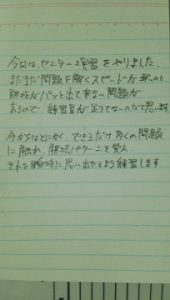 今日は、センター演習をやりました。
まだまだ問題を解くスピードが遅いのと
解法がパット出て来ない問題が
あるので、練習量が足りてないのだと思います
今からはとにかく、できるだけ多くの問題
に触れ、解法パターンを覚え
それを瞬時に思い出せるよう練習します